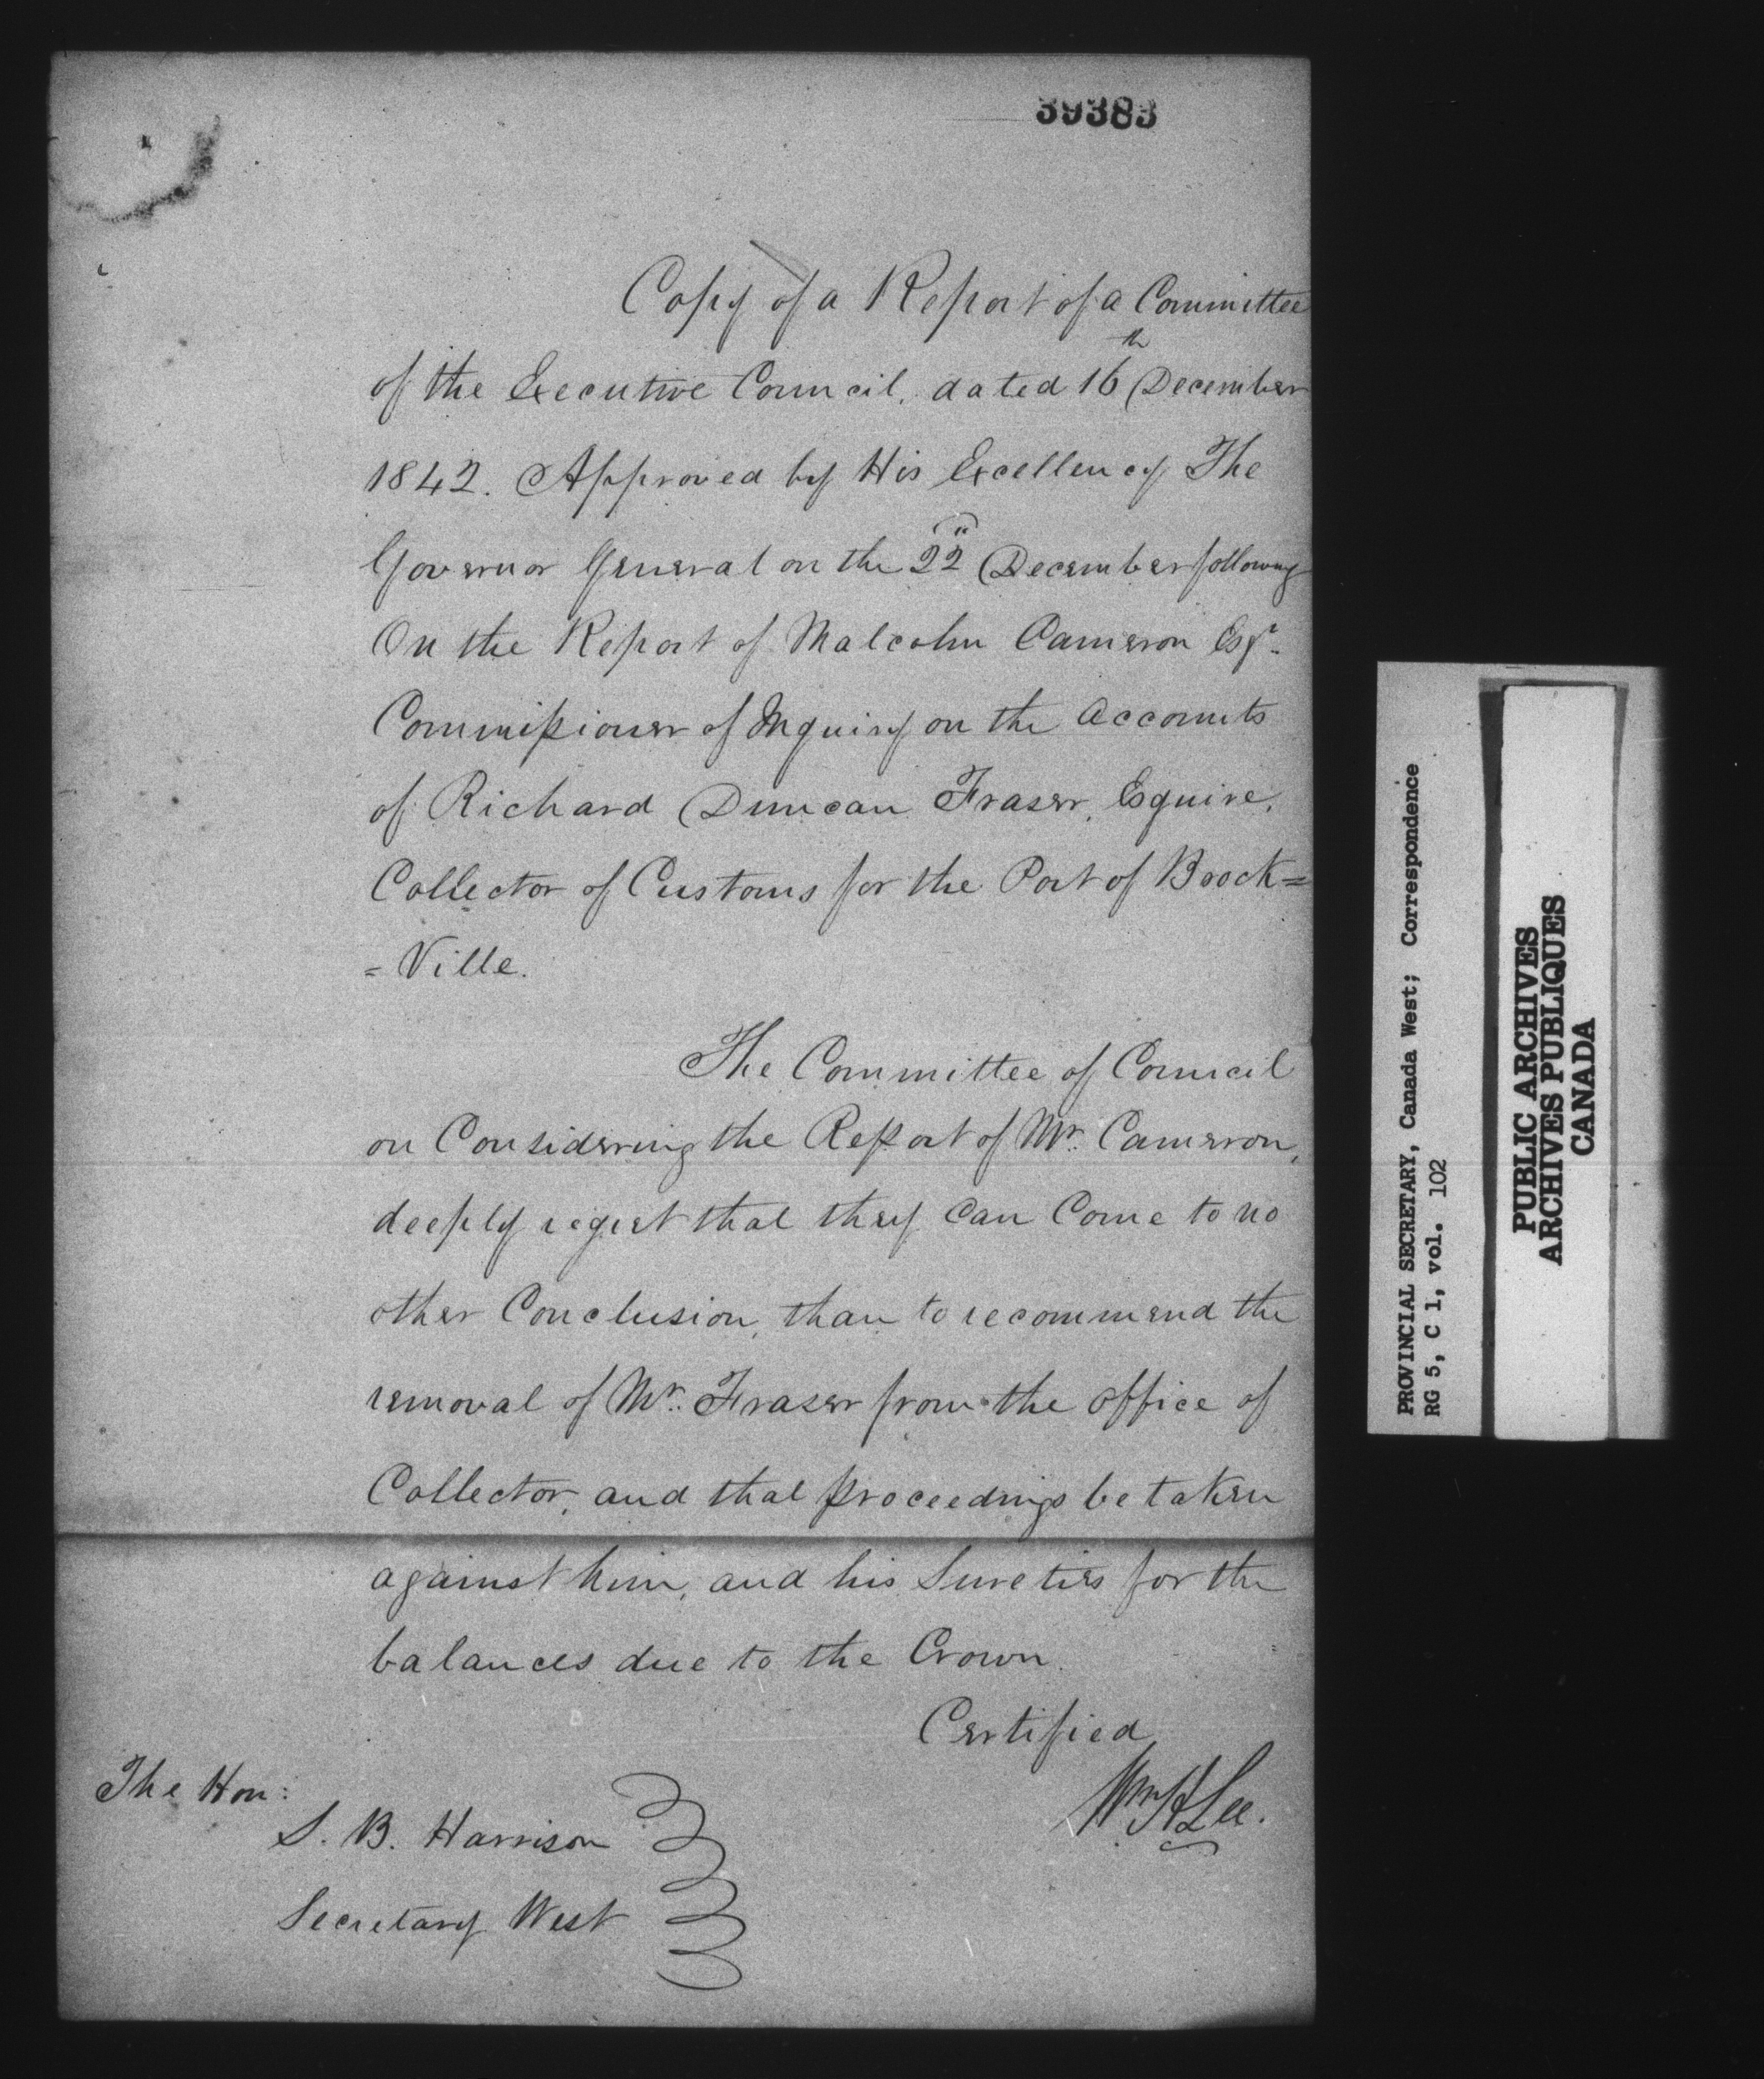 39383
Copy of a Report of a Committee
of the Executive Council, dated 16th December
1842. Approved by His Excellency The
Governor General on the 22" December following
On the Report of Malcolm Cameron Esqr.
Commissioner of Inquiry on the Accounts
of Richard Duncan Fraser, Esquire,
Collector of Customs for the Port of Brock=
=Ville.
The Committee of Council
on Considering the Report of Mr. Cameron,
deeply regret that they can Come to no
other Conclusion, than to recommend the
removal of Mr. Fraser from the office of
Collector, and that proceedings be taken
against him, and his Sureties for the
balances due to the Crown.
Certified
Wm H Lee.
The Hon:
S. B. Harrison
Secretary West
PROVINCIAL SECRETARY, Canada West; Correspondence
RG 5, C 1, vol. 102
PUBLIC ARCHIVES
ARCHIVES PUBLIQUES
CANADA